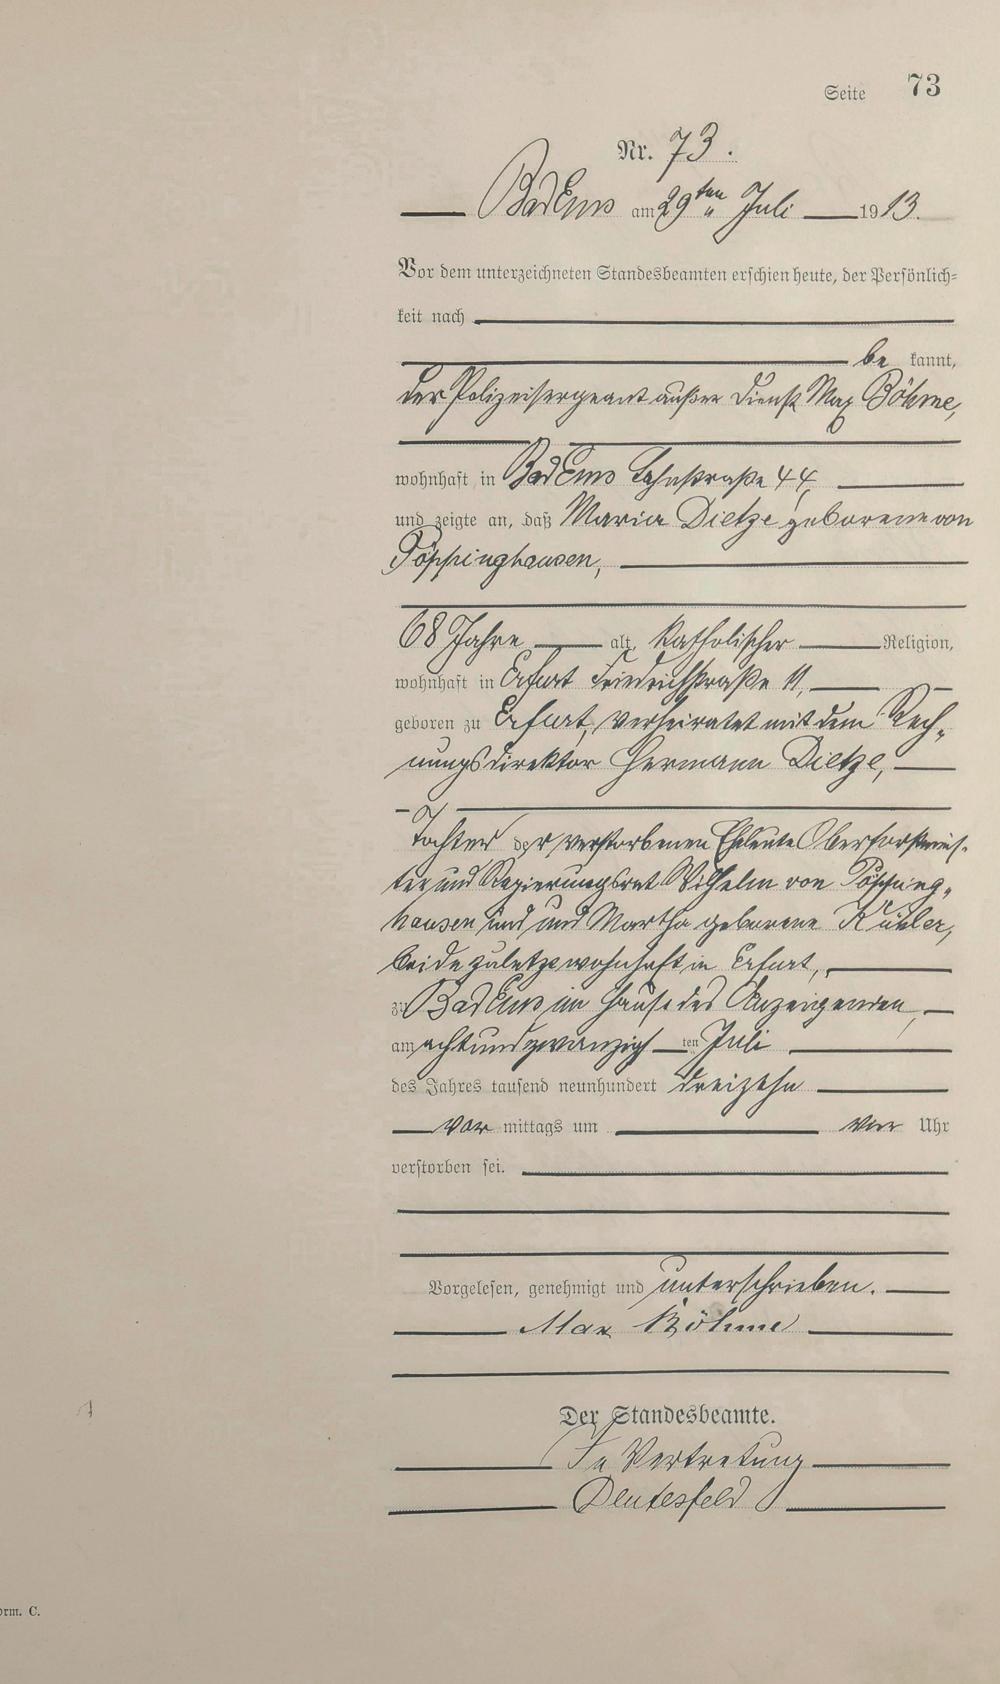 Seite 73
Nr. 73.
Bad Ems am 29ten Juli 1913.
Vor dem unterzeichneten Standesbeamten erschien heute, der Persönlich=
keit nach
be kannt,
der Polizeisergeant außer Dienst Max Böhme,
wohnhaft in Bad Ems Lahnstraße 44,
und zeigte an, daß Maria Dietze geborene von
Pöppinghausen,
68 Jahre alt, katholischer Religion,
wohnhaft in Erfurt Friedrichstraße 11,
geboren zu Erfurt, verheiratet mit dem Rech-
nungsdirektor Hermann Dietze,
Tochter der verstorbenen Eheleute Oberforstmeis-
ter und Regierungsrat Wilhelm von Pöpping-
hausen und und Martha geborene
beide zuletzt wohnhaft in Erfurt,
zu Bad Ems im Hause des Anzeigenden,
am achtundzwanzig ten Juli
des Jahres tausend neunhundert dreizehn
vor mittags um vier Uhr
verstorben sei.
Vorgelesen, genehmigt und unterschrieben.
Max Böhme
Der Standesbeamte.
In Vertretung
orm. C.